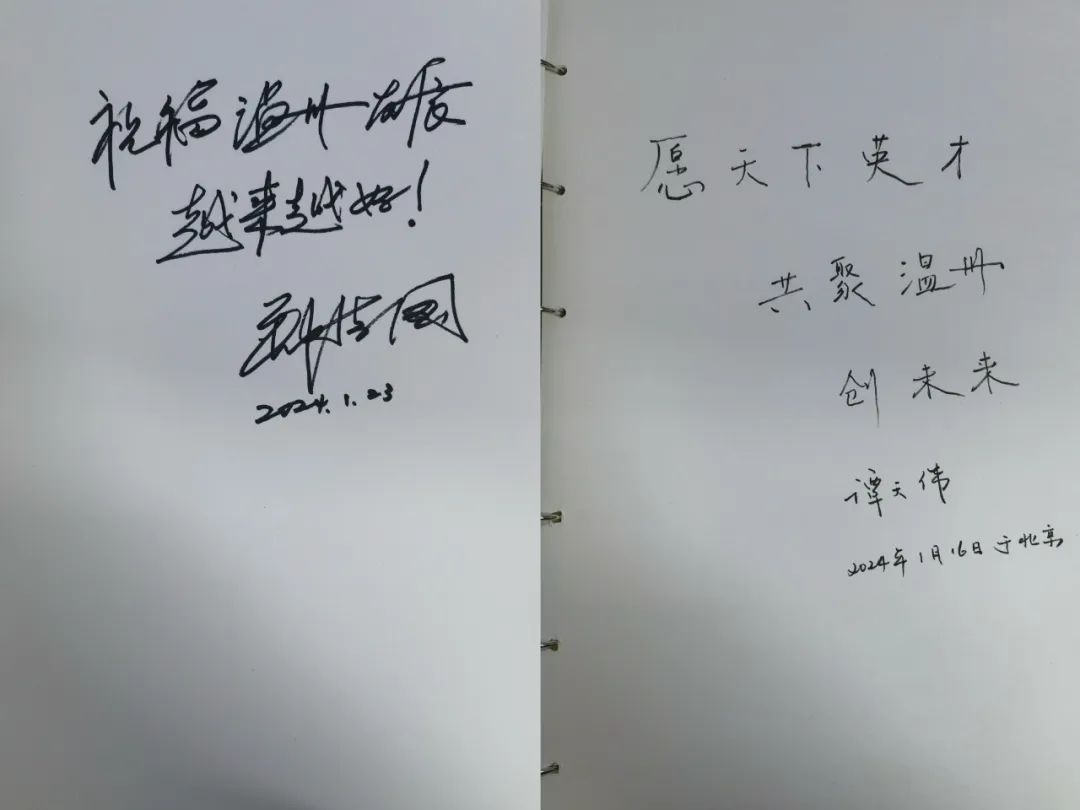 祝福温州发展
越来越好！
2024.1.23
愿天下英才
共聚温州
创未来
谭天伟
2024年1月16日于北京